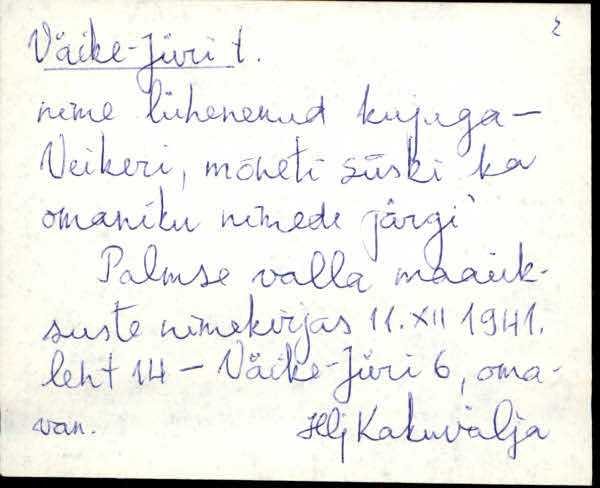 2
Väike-Jüri t.
nime lühenenud kujuga —
Veikeri, mõneti siiski ka
omaniku nimede järgi
Palmse valla maaük-
suste nimekirjas 11. XII 1941.
leht 14 — Väike-Jüri 6, oma-
van. Hlj Kakuvälja